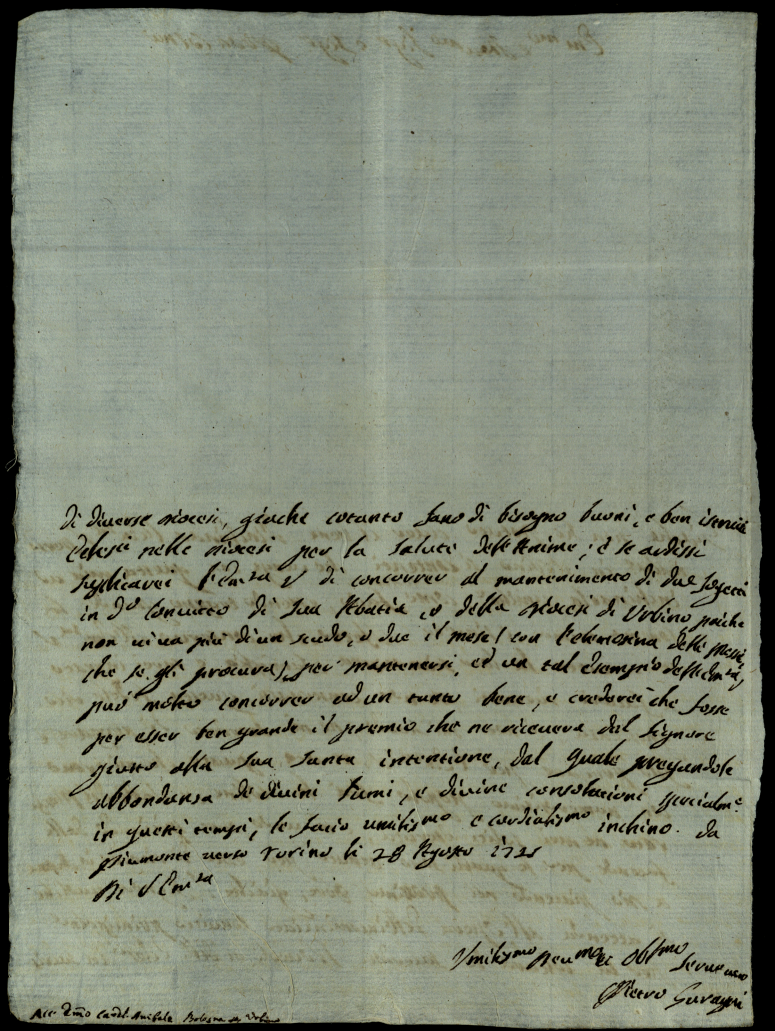 di diverse diocesi, giache cotanto sono di bisogno buoni, e ben istruiti
nelle diocesi per la salute dell'Anime; e se ardissi
suplicarei l'Em:za V di concorrer al mantenimento di due sogetti
in d:o Convitto di sua Abatia, o della diocesi di Urbino poiche
non ui ua piu di un scudo, o due il mese (con l'elemosina delle messe,
che se gli procura) per mantenersi, ed un tal esempio dell'Em:za
può molto concorrer ad un tanto bene, e crederei che fosse
per esser ben grande il premio che ne riceuera dal Signore
giusto alla sua santa intentione, dal quale pregandole
abbondanza de divini lumi, e divine consolationi specialm:e
in questi tempi, le facio umilis:mo e cordialis:mo inchino. da
Piamonte uerso Torino li 28 Agosto 1721
Di V Em:za
Vmilis:mo Deu:mo et Obl:mo Seruo uero
Pietro
Em:o Card:l Anibale